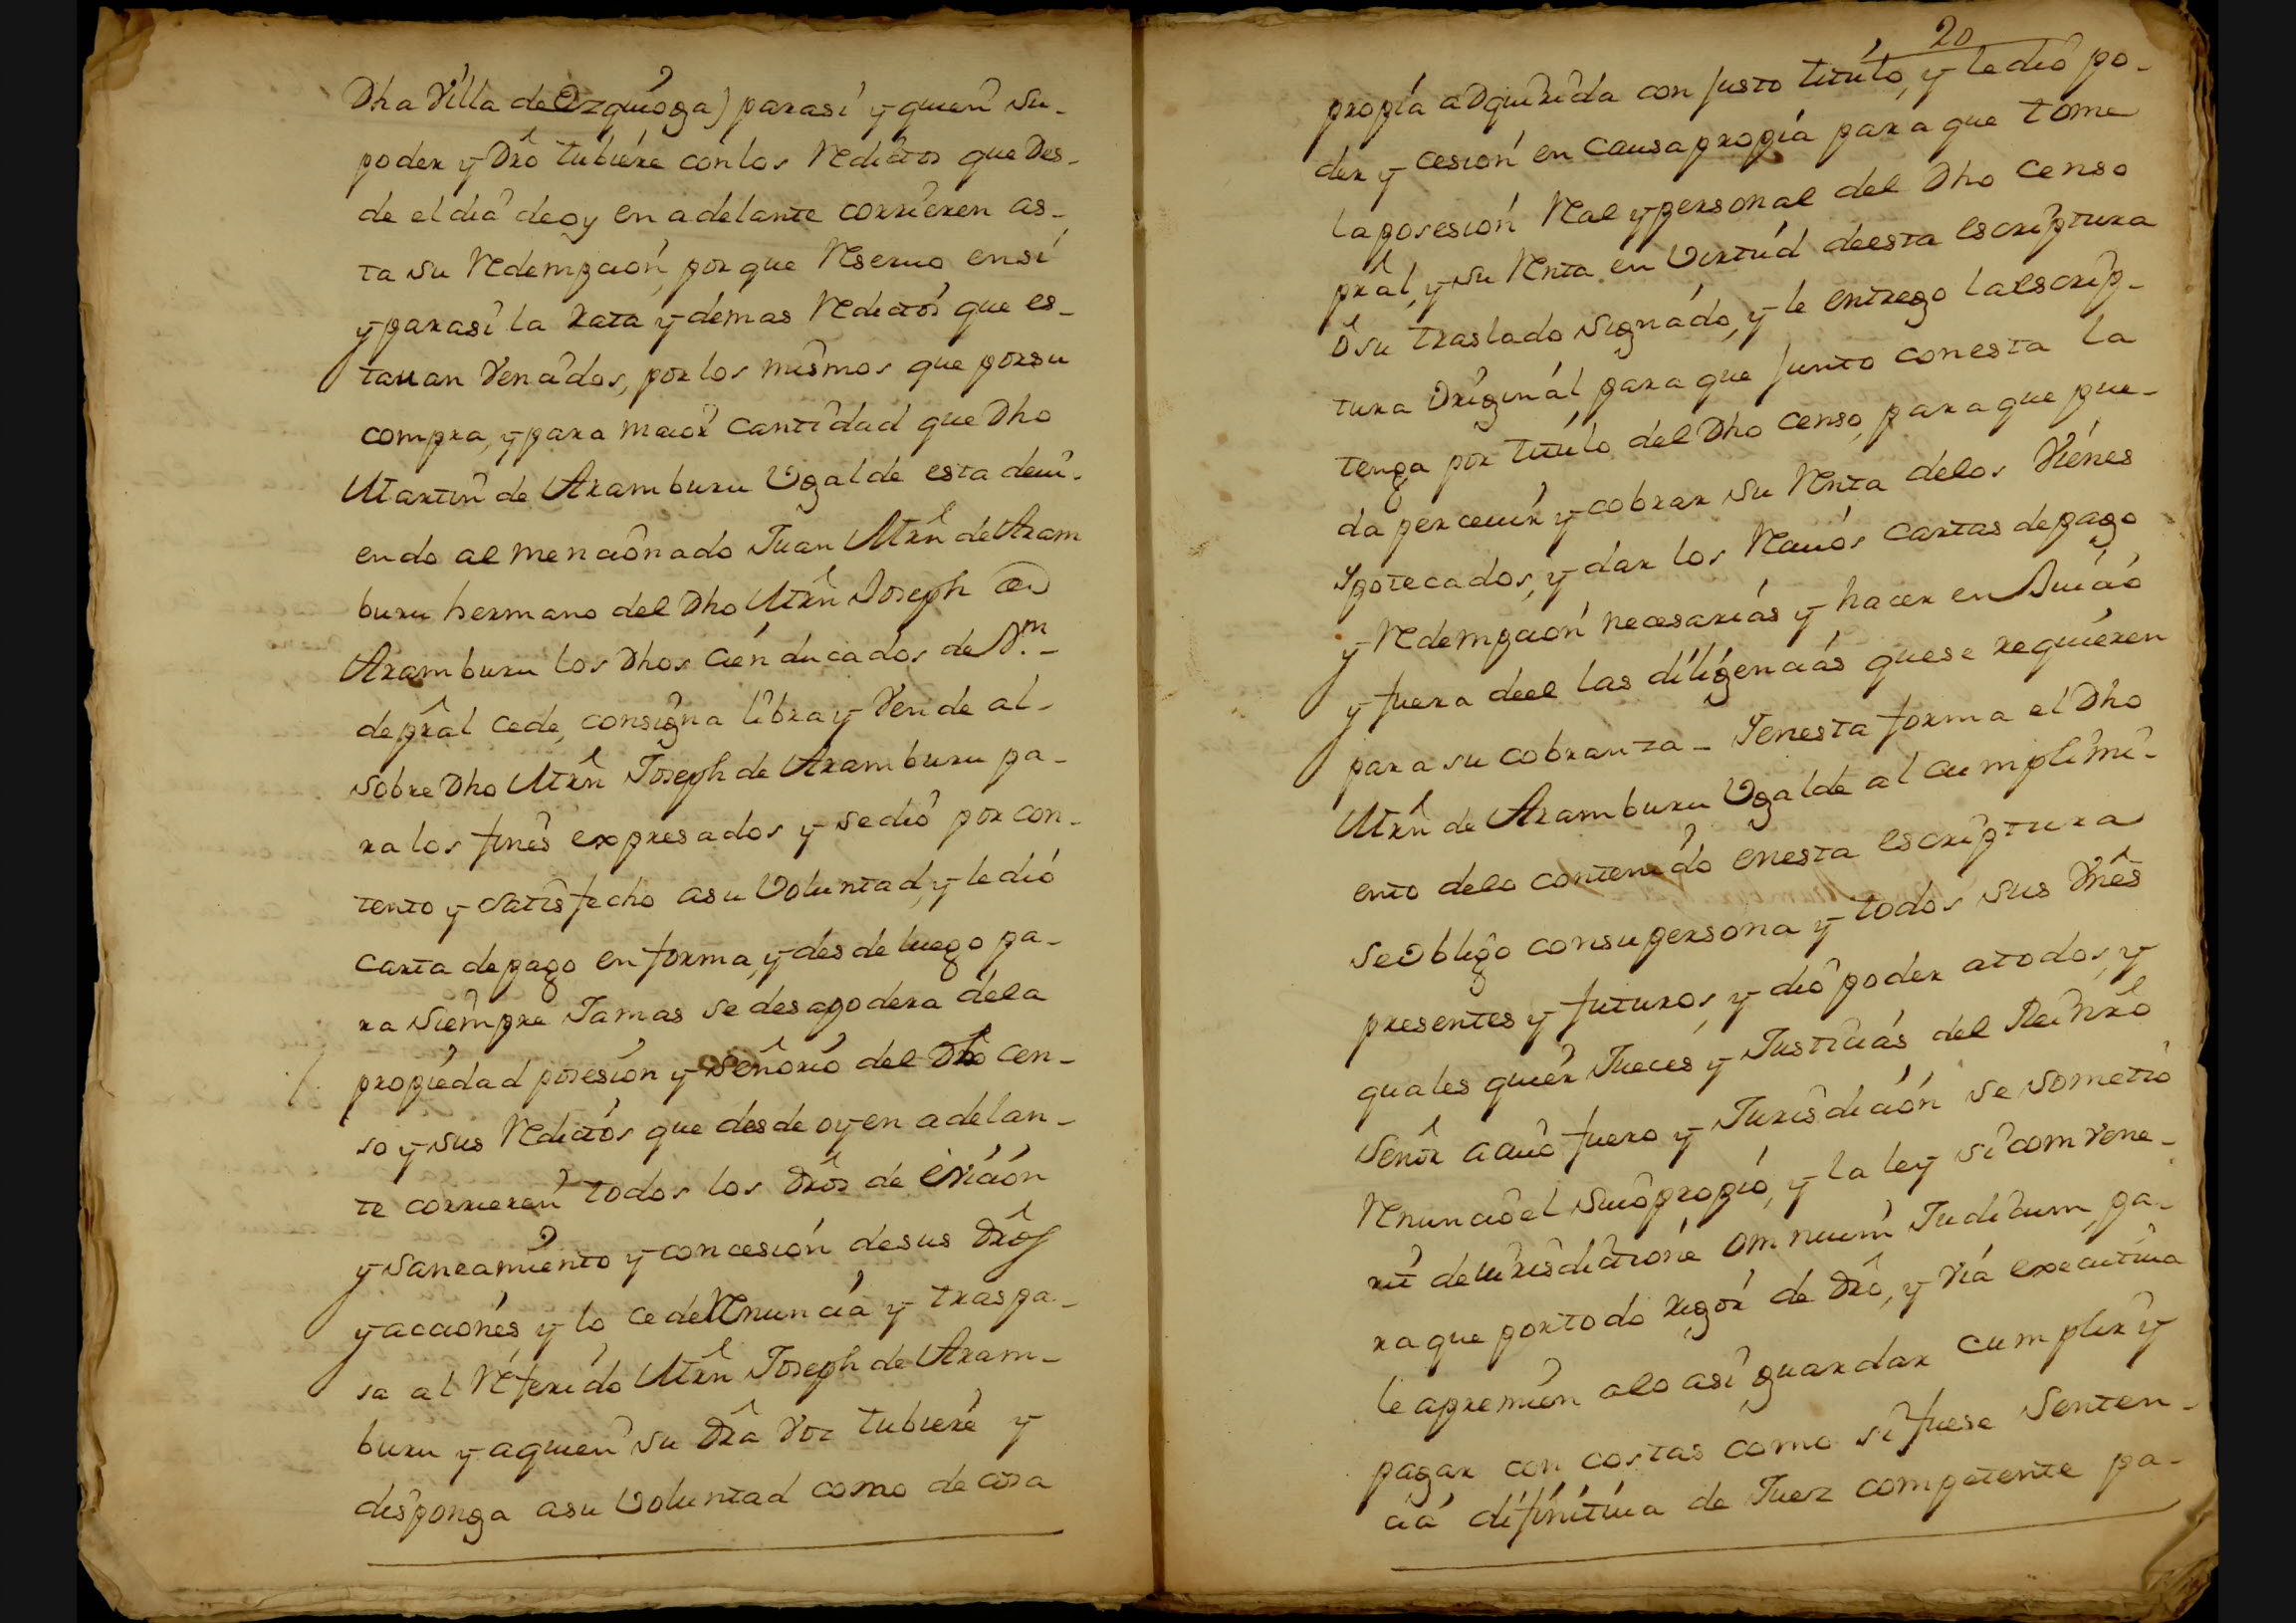 Dha Villa de Ozquioga) parasi y quien su-
poder y Dro tubiere con los Reditos que Des-
de el dia de oy en adelante corrieren as-
ta su Redempcion, por que Reseruo en si
y para si la Rata y demas Reditos que es-
tauan Venzidos, por los mismos que por su
compra, y para maior cantidad que Dho
Martin de Aramburu Vgalde esta deui-
endo al mencionado Juan Mrn de Aram
buru hermano del Dho Mrn Joseph de
Aramburu los Dhos cien ducados de Vn.-
de pral cede, consigna libra y Vende al-
sobre Dho Mrn Joseph de Aramburu pa-
ra los fines expresados y se dio por con-
tento y satisfecho a su Voluntad, y le dio
carta de pago en forma, y desde luego pa-
ra siempre Jamas se desapodera dela
propiedad posesion y señorio del Dho cen-
so y sus Reditos que desde oy en adelan-
te corrieren todos los Dros de evicion
y saneamiento y concesion de sus Dros
y acciones, y lo cede Renuncia y traspa-
sa al Referido Mrn Joseph de Aram-
buru y a quien su Dra Voz tubiere y
disponga a su Voluntad como de cosa
20
propia aDquirida con Justo titulo, y le dio po-
der y cesion en causa propia para que tome
la posesion Real y personal del Dho censo
pral, y su Renta en Virtud de esta escriptura
ô su traslado signado, y le entrego la escrip-
tura Original para que Junto con esta la
tenga por titulo del Dho censo, para que pue-
da perceuir y cobrar su Renta delos Vienes
Ypotecados, y dar los Reciuos cartas de pago
y Redempcion necesarias y hacer en Juicio
y fuera de el las diligencias que se requieren
para su cobranza - Yenesta forma el Dho
Mrn de Aramburu Vgalde al cumplimi-
ento delo contenido enesta escriptura
se obligo con su persona y todos sus Vnes
presentes y futuros, y dio poder a todos, y
quales quier Jueces y Justicias del Rei nro
Señor a cuio fuero y Jurisdicion se sometio
Renuncio el suio propio, y la ley si combene-
rit de iurisdictione omnium Judicum, pa-
ra que por todo rigor de Dro, y Via executiua
le apremien alo asi guardar cumplir y
pagar con costas como si fuese Senten-
cia difinitiua de Juez competente pa-